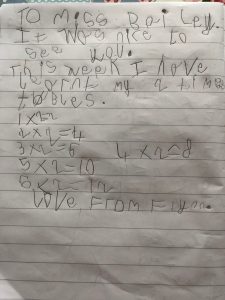 TO Miss Bailey.
It was nice to
see you.
This week I love
learnt my 2 times
tables.
1x2=2
2x2=4
3x2=6 4x2=8
5x2=10
6x2=12
love From